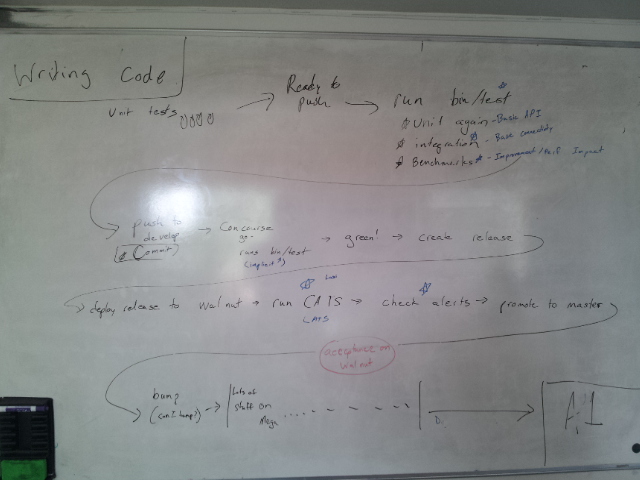 Writing Code
Unit tests
Ready to
push
run bin/test
Unit again - Basic API
integration - Base
Benchmarks - Improvement / Perf Impact
push to
develop
Commit
Concourse
runs bin/test
green!
create release
deploy release to walnut
run CATS
LATS
check alerts
promote to master
acceptance on
walnut
bump
lots of
stuff on
A1